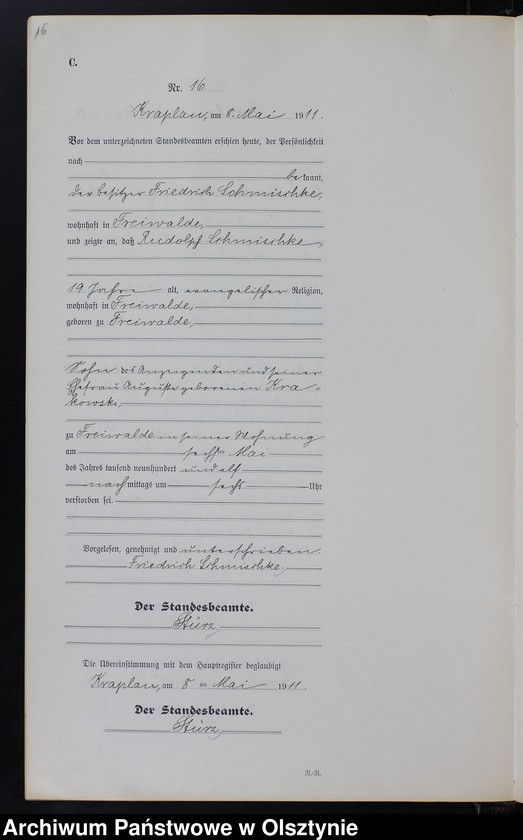 16
C.
Nr. 16.
Kraplau, am 8. Mai 1911.
Vor dem unterzeichneten Standesbeamten erschien heute, der Persönlichkeit
nach
bekannt,
der Besitzer Friedrich Schmischke,
wohnhaft in Freiwalde,
und zeigte an, daß Rudolf Schmischke
19 Jahre alt, evangelischer Religion,
wohnhaft in Freiwalde,
geboren zu Freiwalde,
Sohn des Anzeigenden und seiner
Ehefrau Auguste geborenen Kra=
kowski,
zu Freiwalde in seiner Wohnung
am sechsten Mai
des Jahres tausend neunhundert und elf
nachmittags um sechs Uhr
verstorben sei.
Vorgelesen, genehmigt und unterschrieben.
Friedrich Schmischke,
Der Standesbeamte.
Stürz
Die Übereinstimmung mit dem Hauptregister beglaubigt
Kraplau, am 8 ten Mai 1911.
Der Standesbeamte.
Stürz
Archiwum Państwowe w Olsztynie